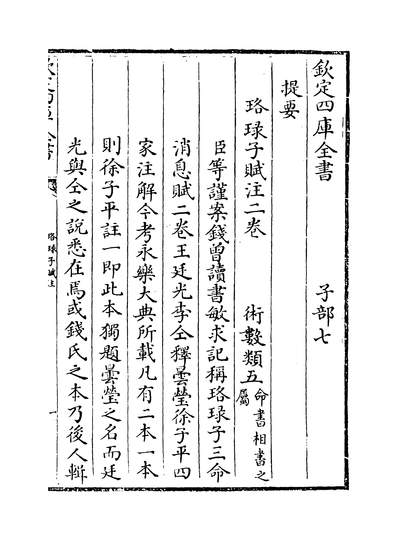 欽定四庫全書　　　　子部七
提要
珞琭子賦注二卷　　術數類五命書相書之屬
臣等謹案錢曾讀書敏求記稱珞琭子三命
消息賦二卷王廷光李仝釋曇瑩徐子平四
家注解今考永樂大典所載凡有二本一本
則徐子平註一即此本獨題曇瑩之名而廷
光與仝之說悉在焉或錢氏之本乃後人輯
珞琭子賦注